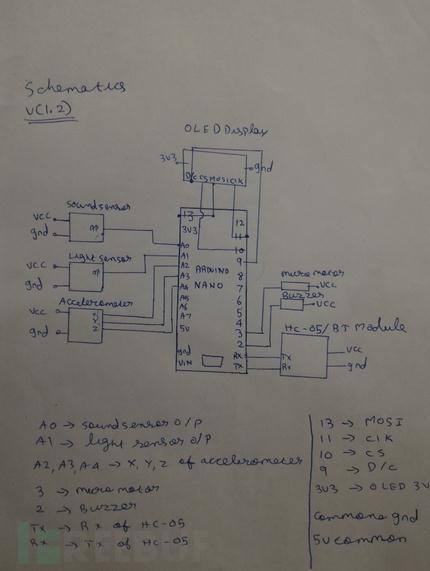 Schematics
V(1.2)
OLED Display
3V3
gnd
D/C CS MOSI CLK
Sound sensor
VCC
gnd
O/P
Light sensor
VCC
gnd
O/P
Accelerometer
VCC
gnd
X
Y
Z
13
3V3
A0
A1
A2
A3
A4
A5
A6
A7
5V
gnd
VIN
ARDUINO
NANO
12
11
10
9
8
7
6
5
4
3
2
RX
TX
micro motor
VCC
Buzzer
VCC
HC-05/BT Module
Tx
Rx
VCC
gnd
A0 → sound sensor O/P
A1 → light sensor O/P
A2, A3, A4 → X, Y, Z of accelerometer
3 → micro motor
2 → Buzzer
Tx → Rx of HC-05
Rx → Tx of HC-05
13 → MOSI
11 → CLK
10 → CS
9 → D/C
3V3 → OLED 3V
Common gnd
5V common